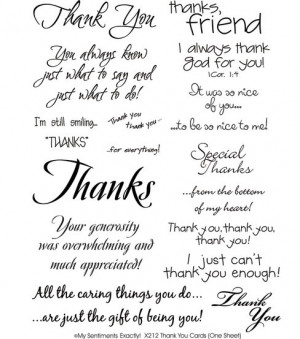 Thank You
You always know
just what to say and
just what to do!
I'm still smiling...
Thank you
thank you...
"THANKS"
..for everything!
Thanks
Your generosity
was overwhelming and
much appreciated!
thanks,
friend
I always thank
God for you!
1 Cor. 1:4
It was so nice
of you...
...to be so nice to me!
Special
Thanks
...from the bottom
of my heart!
Thank you, thank you,
thank you!
I just can't
thank you enough!
All the caring things you do...
...are just the gift of being you!
Thank
You
©My Sentiments Exactly! X212 Thank You Cards (One Sheet)